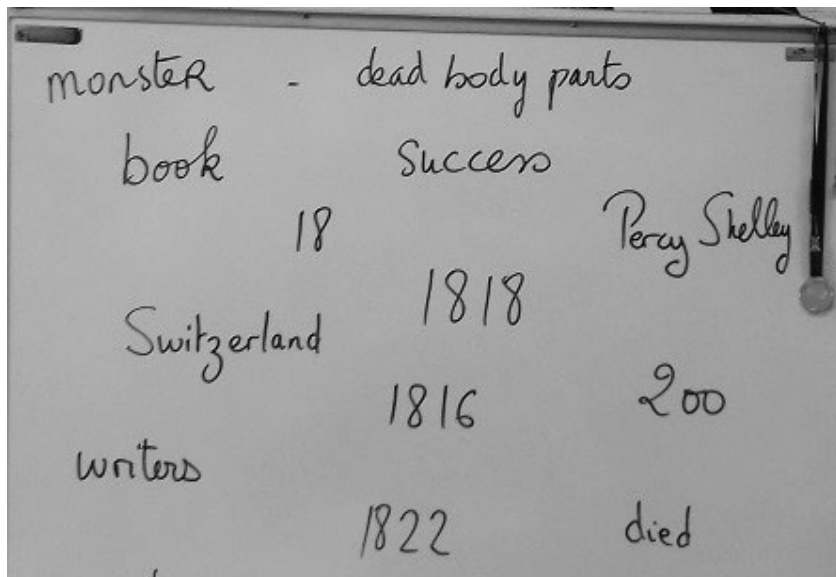 monsteR - dead body parts
book success
18 Percy Shelley
1818
Switzerland
1816 200
writers
1822 died